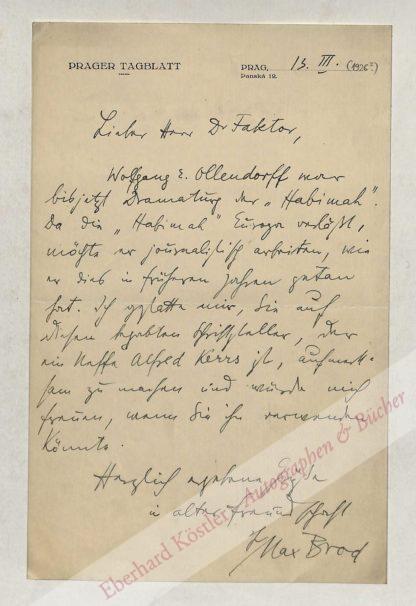 PRAGER TAGBLATT
PRAG, 13. III. (1926?)
Panská 12.
Lieber Herr Dr Faktor,
Wolfgang E. Ollendorff war
bisjetzt Dramaturg der „Habimah".
Da die „Habimah" Europa verläßt,
möchte er journalistisch arbeiten, wie
er dies in früheren Jahren getan
hat. Ich gestatte mir, Sie auf
diesen begabten Schriftsteller, der
ein Neffe Alfred Kerrs ist, aufmerk-
sam zu machen und würde mich
freuen, wenn Sie ihn verwenden
könnten.
Herzlich ergebene Grüße
in alter Freundschaft
Ihr Max Brod
Eberhard Köstler Autographen & Bücher